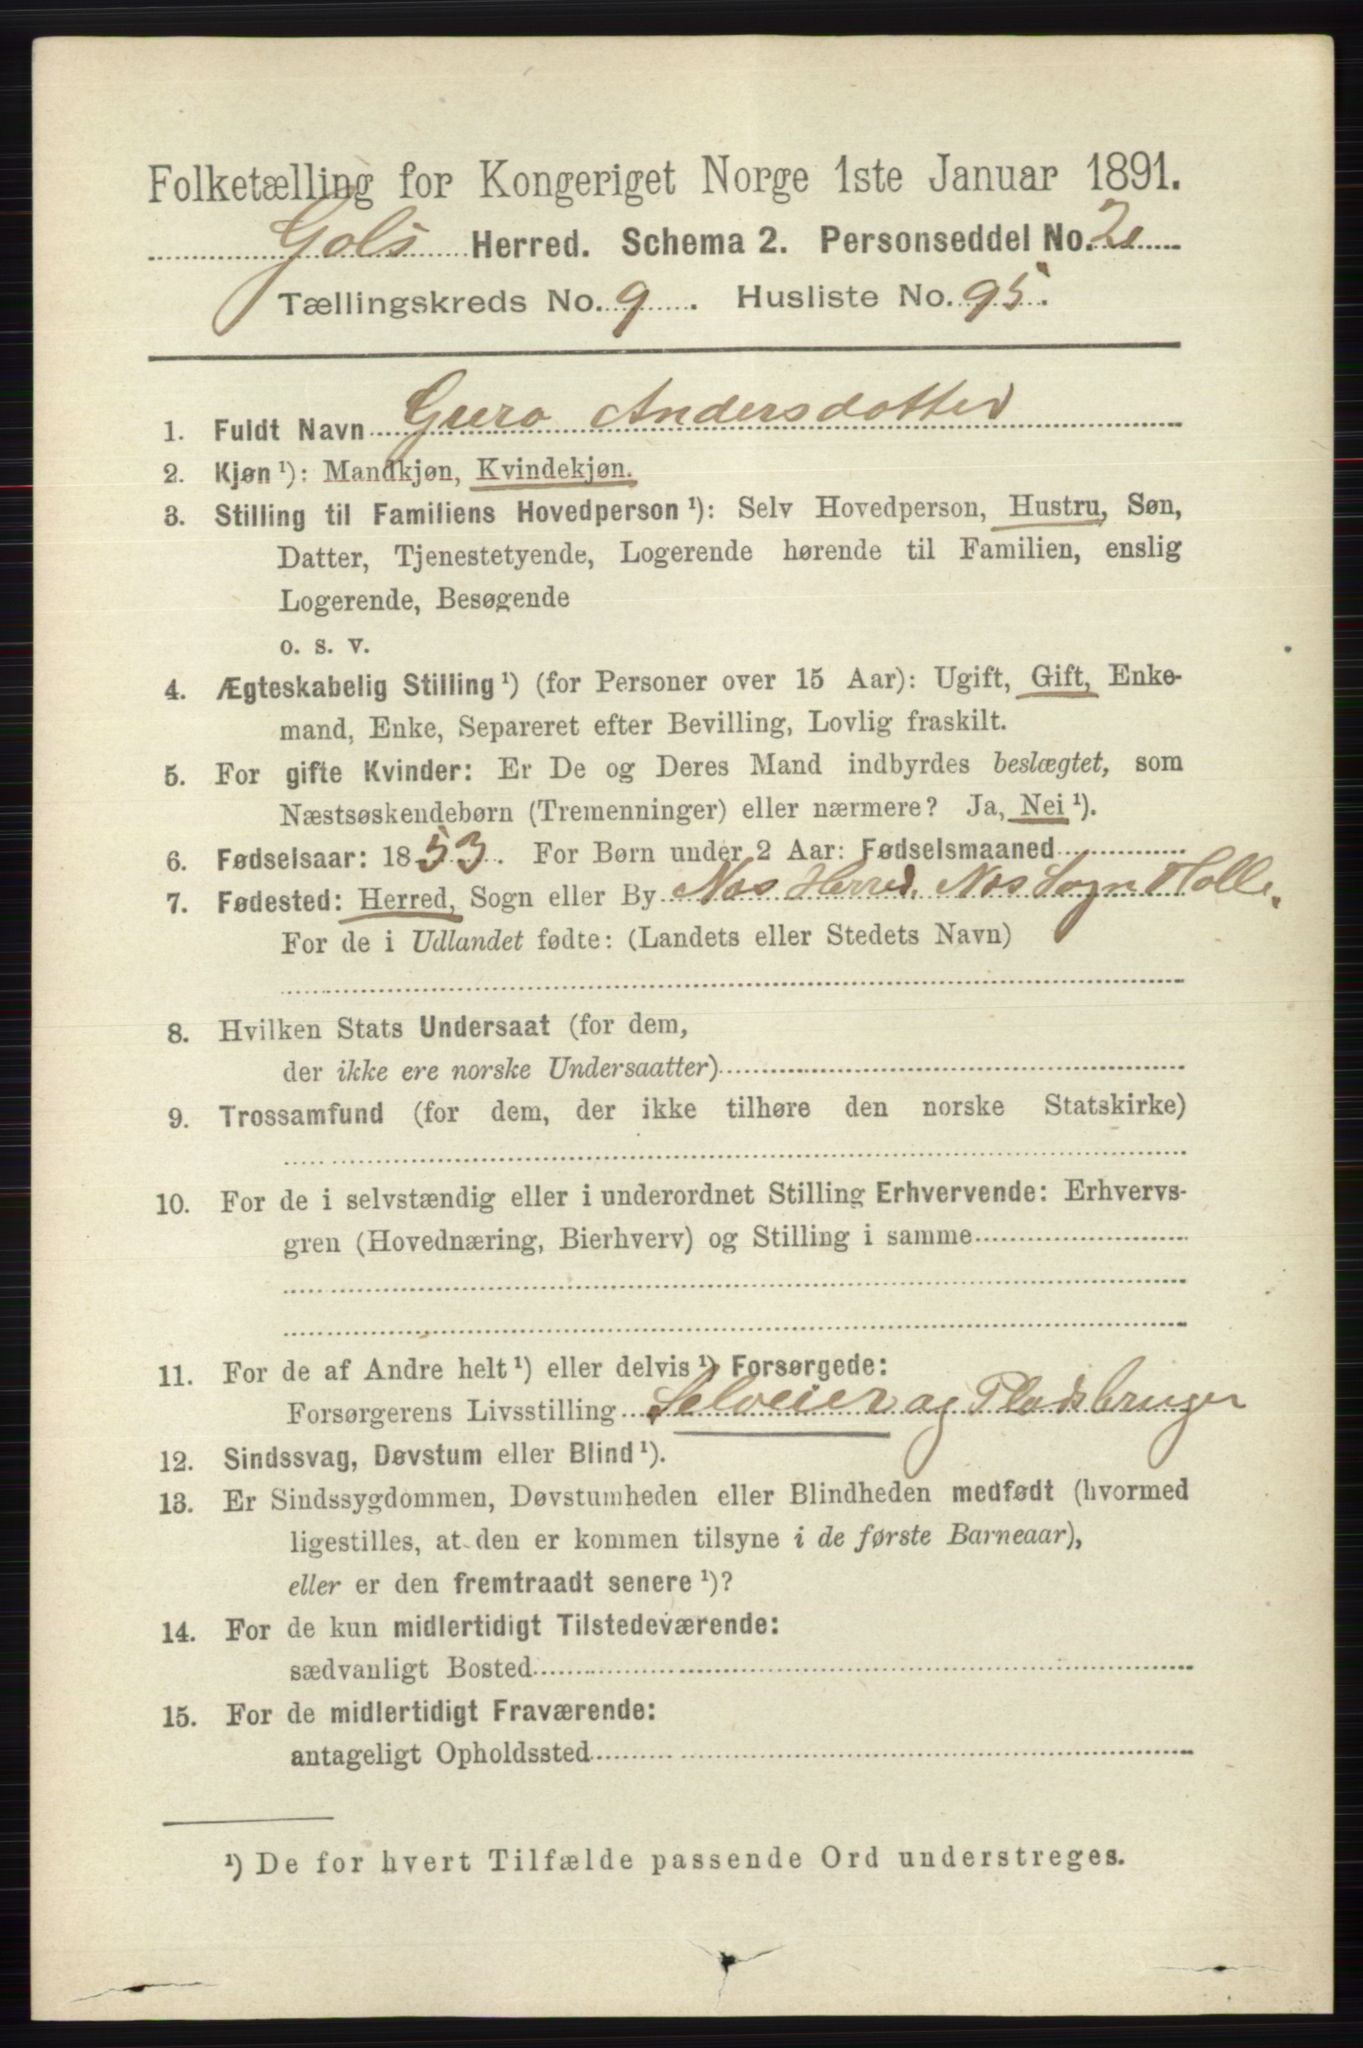 Folketælling for Kongeriget Norge 1ste Januar 1891.
Gols Herred. Schema 2. Personseddel No. 2
Tællingskreds No. 9. Husliste No. 95.
1. Fuldt Navn Guro Andersdotter
2. Kjøn¹): Mandkjøn, Kvindekjøn.
3. Stilling til Familiens Hovedperson¹): Selv Hovedperson, Hustru, Søn,
Datter, Tjenestetyende, Logerende hørende til Familien, enslig
Logerende, Besøgende
o. s. v.
4. Ægteskabelig Stilling¹) (for Personer over 15 Aar): Ugift, Gift, Enke-
mand, Enke, Separeret efter Bevilling, Lovlig fraskilt.
5. For gifte Kvinder: Er De og Deres Mand indbyrdes beslægtet, som
Næstsøskendebørn (Tremenninger) eller nærmere? Ja, Nei¹).
6. Fødselsaar: 1853. For Børn under 2 Aar: Fødselsmaaned
7. Fødested: Herred, Sogn eller By Nes Herred, Nes Sogn
For de i Udlandet fødte: (Landets eller Stedets Navn)
8. Hvilken Stats Undersaat (for dem,
der ikke ere norske Undersaatter)
9. Trossamfund (for dem, der ikke tilhøre den norske Statskirke)
10. For de i selvstændig eller i underordnet Stilling Erhvervende: Erhvervs-
gren (Hovednæring, Bierhverv) og Stilling i samme
11. For de af Andre helt¹) eller delvis¹) Forsørgede:
Forsørgerens Livsstilling Selveier og Pladsbruger
12. Sindssvag, Døvstum eller Blind¹).
13. Er Sindssygdommen, Døvstumheden eller Blindheden medfødt (hvormed
ligestilles, at den er kommen tilsyne i de første Barneaar),
eller er den fremtraadt senere¹)?
14. For de kun midlertidigt Tilstedeværende:
sædvanligt Bosted
15. For de midlertidigt Fraværende:
antageligt Opholdssted
¹) De for hvert Tilfælde passende Ord understreges.